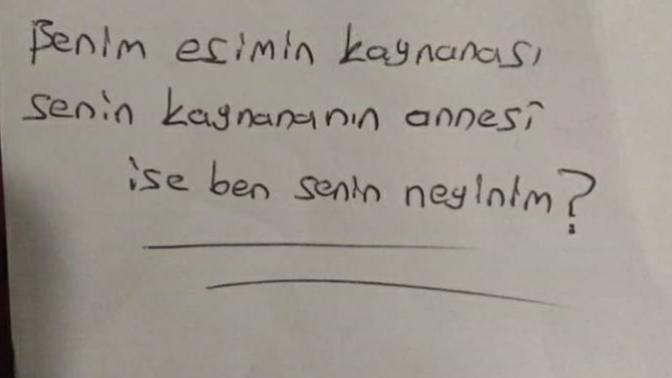 Benim eşimin kaynanası
senin kaynananın annesi
ise ben senin neyinim?